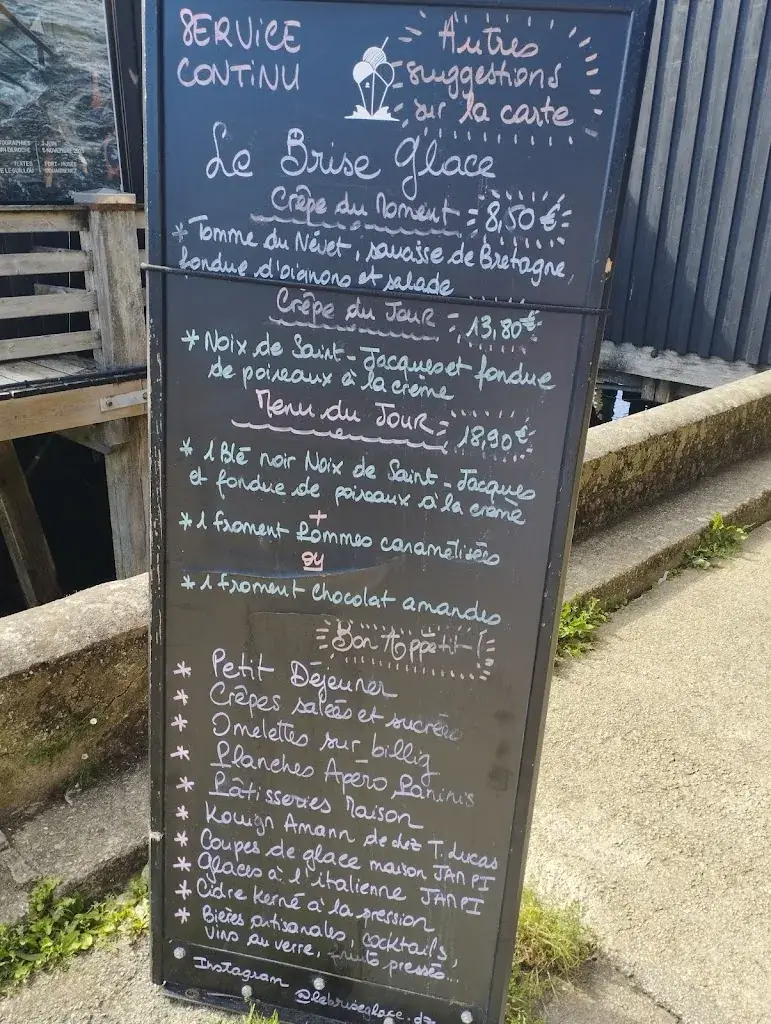 SERVICE
CONTINU
Autres
suggestions
sur la carte
Le Brise Glace
Crêpe du Moment 8,50€
* Tomme du Névet, saucisse de Bretagne,
fondue d'oignons et salade
Crêpe du Jour 13,80€
* Noix de Saint-Jacques et fondue
de poireaux à la crème
Menu du Jour 18,90€
* 1 Blé noir Noix de Saint-Jacques
et fondue de poireaux à la crème
+
* 1 froment Pommes caramélisées
ou
* 1 froment Chocolat amandes
Bon Appétit!
* Petit Déjeuner
* Crêpes salées et sucrées
* Omelettes sur billig
* Planches Apéro Paninis
* Pâtisseries Maison
* Kouign Amann de chez T. Lucas
* Coupes de glace maison JAMPI
* Glaces à l'italienne JAMPI
* Cidre Kerné à la pression
* Bières artisanales, cocktails,
vins au verre, fruits pressés...
Instagram @labriseglace.dz